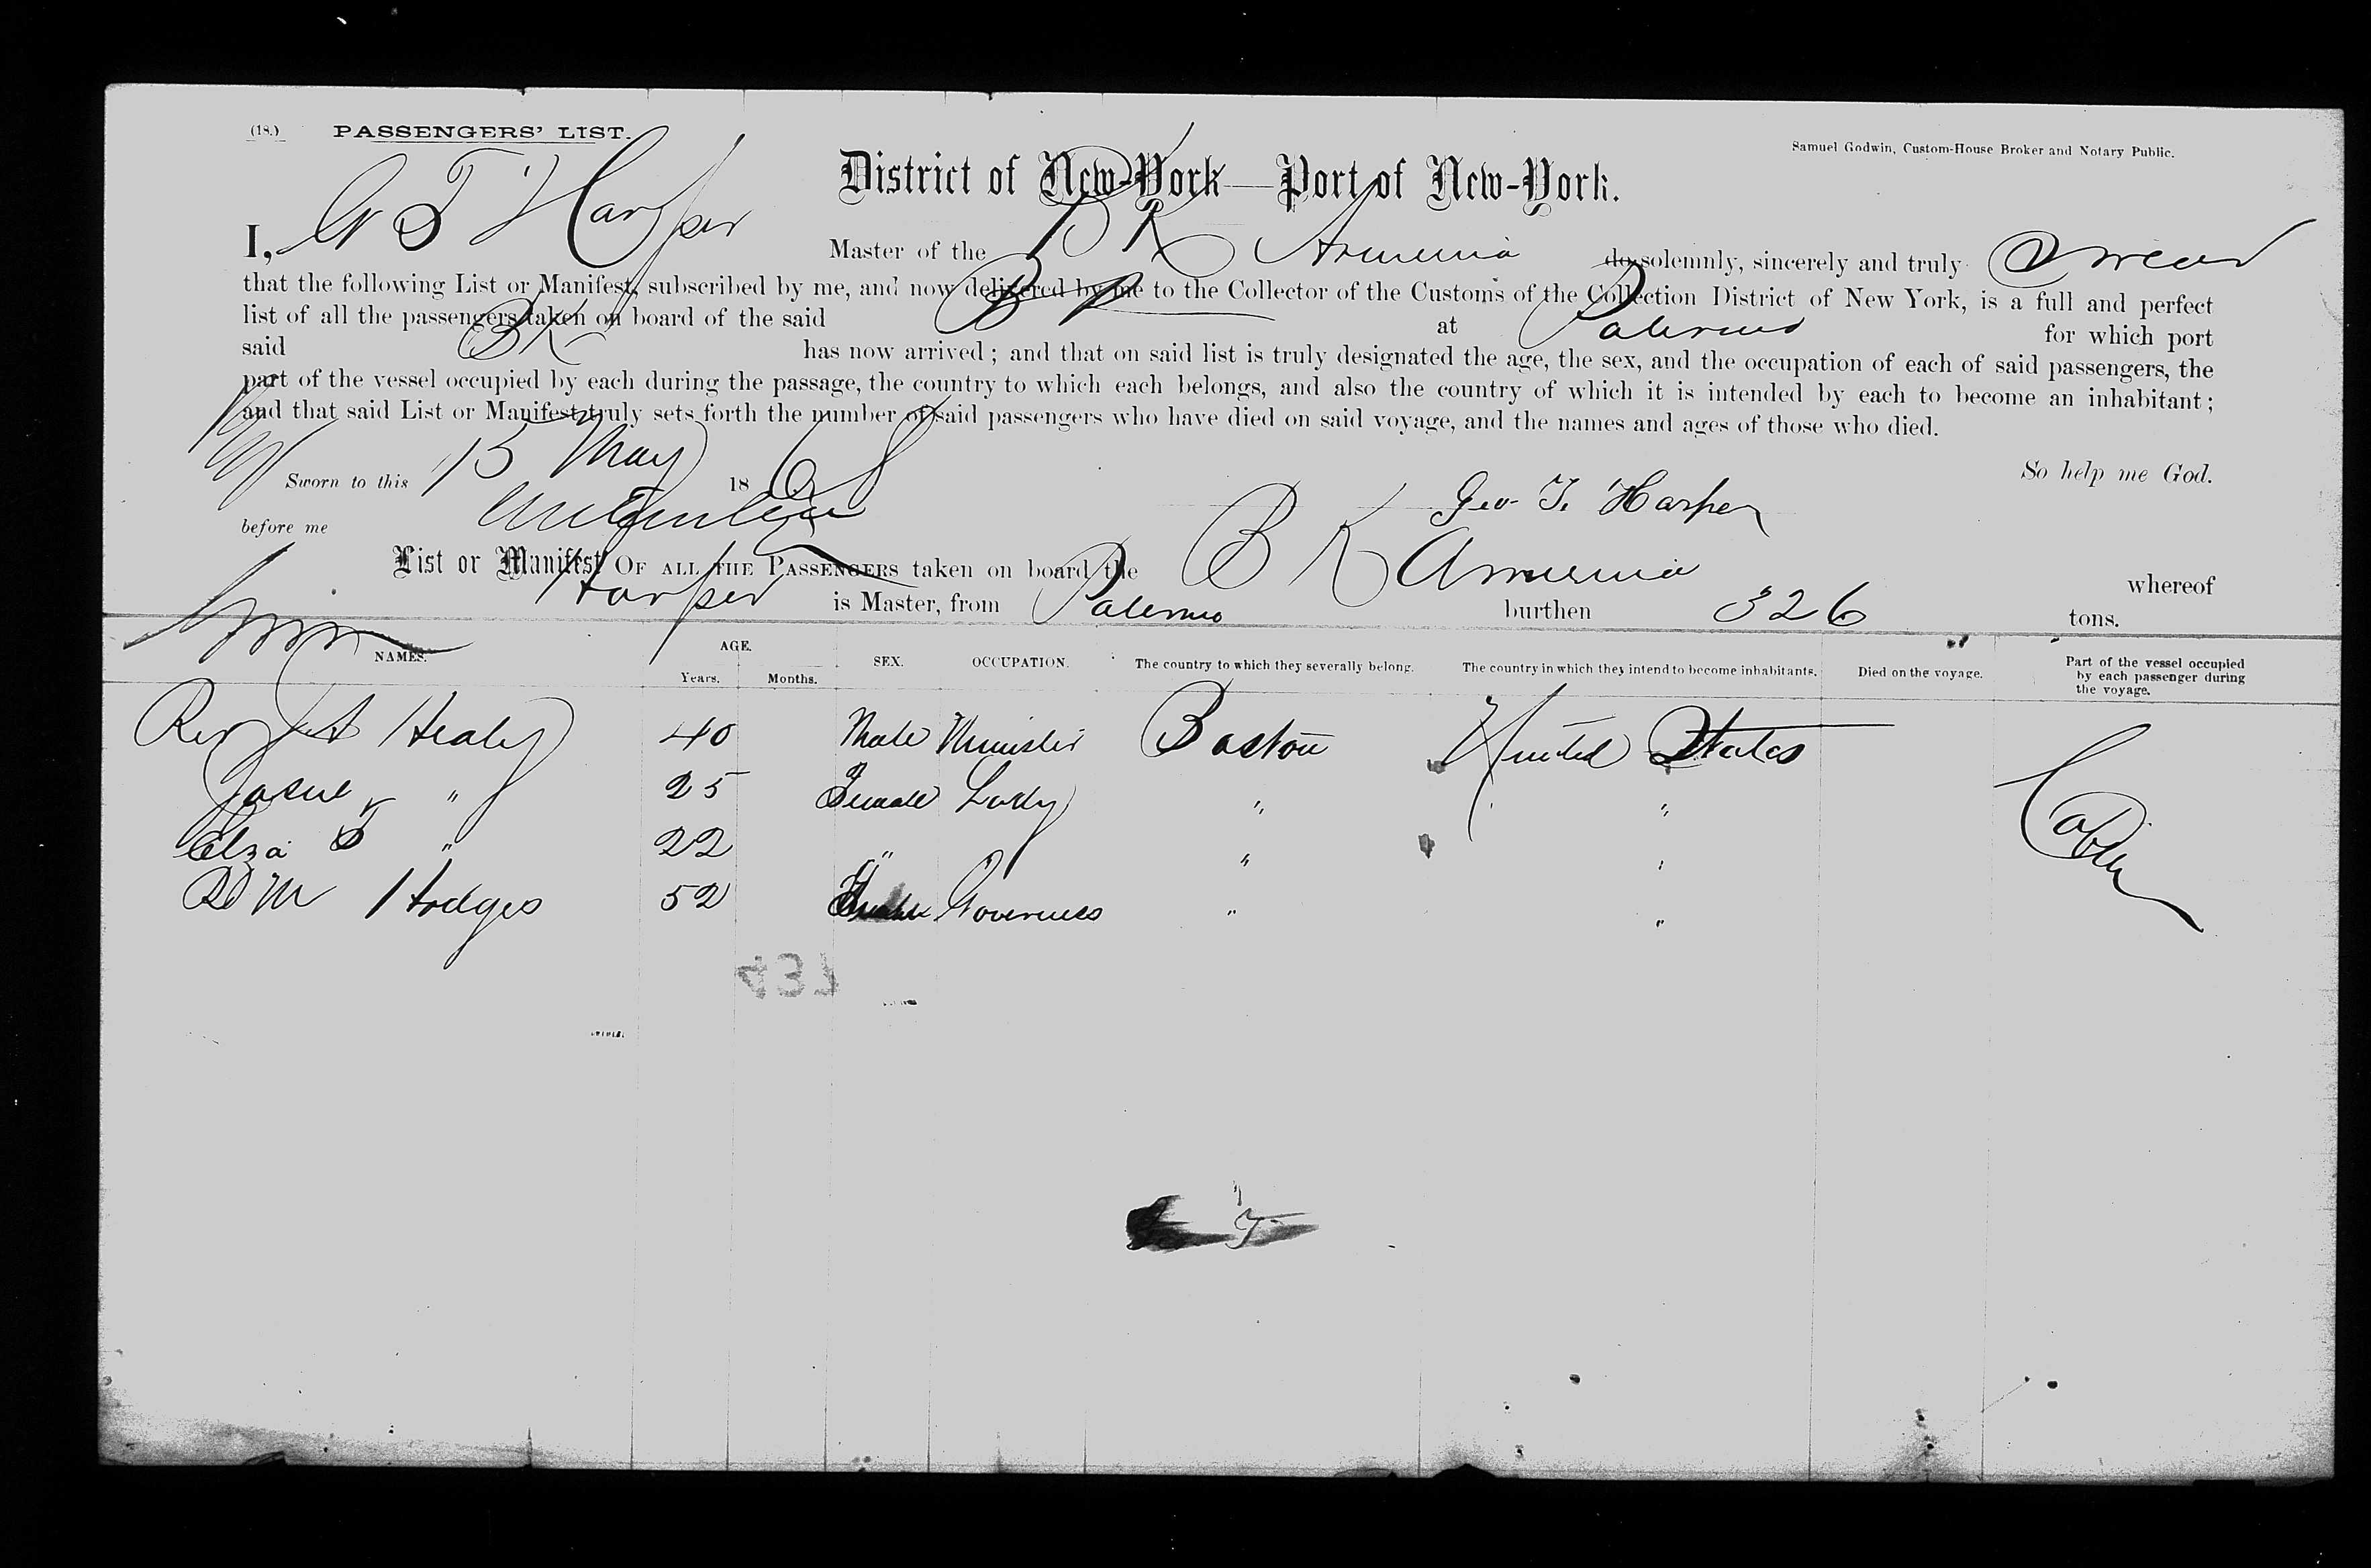 (18.) PASSENGERS' LIST.
Samuel Godwin, Custom-House Broker and Notary Public.
District of New-York—Port of New-York.
I, G T Harper Master of the BK Armenia do solemnly, sincerely and truly Swear
that the following List or Manifest, subscribed by me, and now delivered by me to the Collector of the Customs of the Collection District of New York, is a full and perfect
list of all the passengers taken on board of the said BK at Palermo for which port
said BK has now arrived; and that on said list is truly designated the age, the sex, and the occupation of each of said passengers, the
part of the vessel occupied by each during the passage, the country to which each belongs, and also the country of which it is intended by each to become an inhabitant;
and that said List or Manifest truly sets forth the number of said passengers who have died on said voyage, and the names and ages of those who died.
So help me God.
Sworn to this 15 May 1868
Geo T. Harper
before me
List or Manifest OF ALL THE PASSENGERS taken on board the BK Armenia whereof
Harper is Master, from Palermo burthen 326 tons.
NAMES. AGE. Years. Months. SEX. OCCUPATION. The country to which they severally belong. The country in which they intend to become inhabitants. Died on the voyage. Part of the vessel occupied by each passenger during the voyage.
Rev J A Healy 40 Male Minister Boston United States
" 25 Female Lady " " Cabin
Elza " 22 " " "
M Hodges 52 Female Governess " "
437